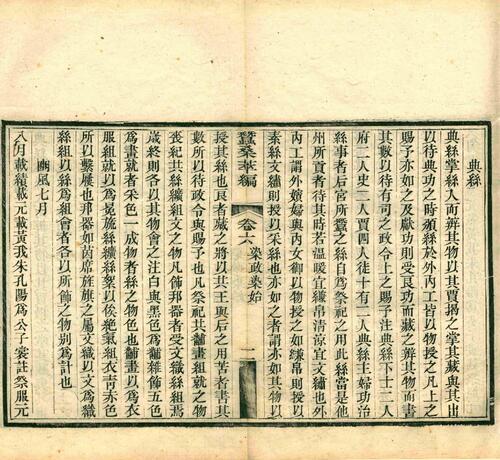 典絲
典絲掌絲入而辨其物以其賈揭之掌其藏與其出
以待典功之時頒絲於外內工皆以物授之凡上之
賜予亦如之及獻功則受良功而藏之辨其物而書
其數以待有司之政令上之賜予注典絲下士二人
府二人史二人賈四人徒十有二人典絲主婦功治
絲事者后宮所蠶之絲自為祭祀之用此絲當是他
州所貢者待其時若溫暖宜縑帛清涼宜文繡也外
內工謂外嬪婦與內女御以物授之如縑帛則授以
素絲文繡則授以采絲也亦如之者謂亦如其物以
蠶桑萃編
卷六
染政 染始
一
授其絲也良者藏之將以共其王與后之用苦者書其
數所以待政令與賜予也凡祭祀共黼畫組就之物
喪紀共絲纊組文之物凡飾邦器者受文織絲組焉
歲終則各以其物會之注白與黑色為黼雜飾五色
為畫就者采色一成物者絲之物色也黼畫以為衣
服組就以為冕旒絲纊絲絮以俟絶氣組衣靑赤色
所以繫屨也邦器如茵席旌旗之屬文織以文為織
絲組以絲為組會者各以所飾之物别為計也
豳風七月
八月載績載元載黃我朱孔陽為公子裳註祭服元